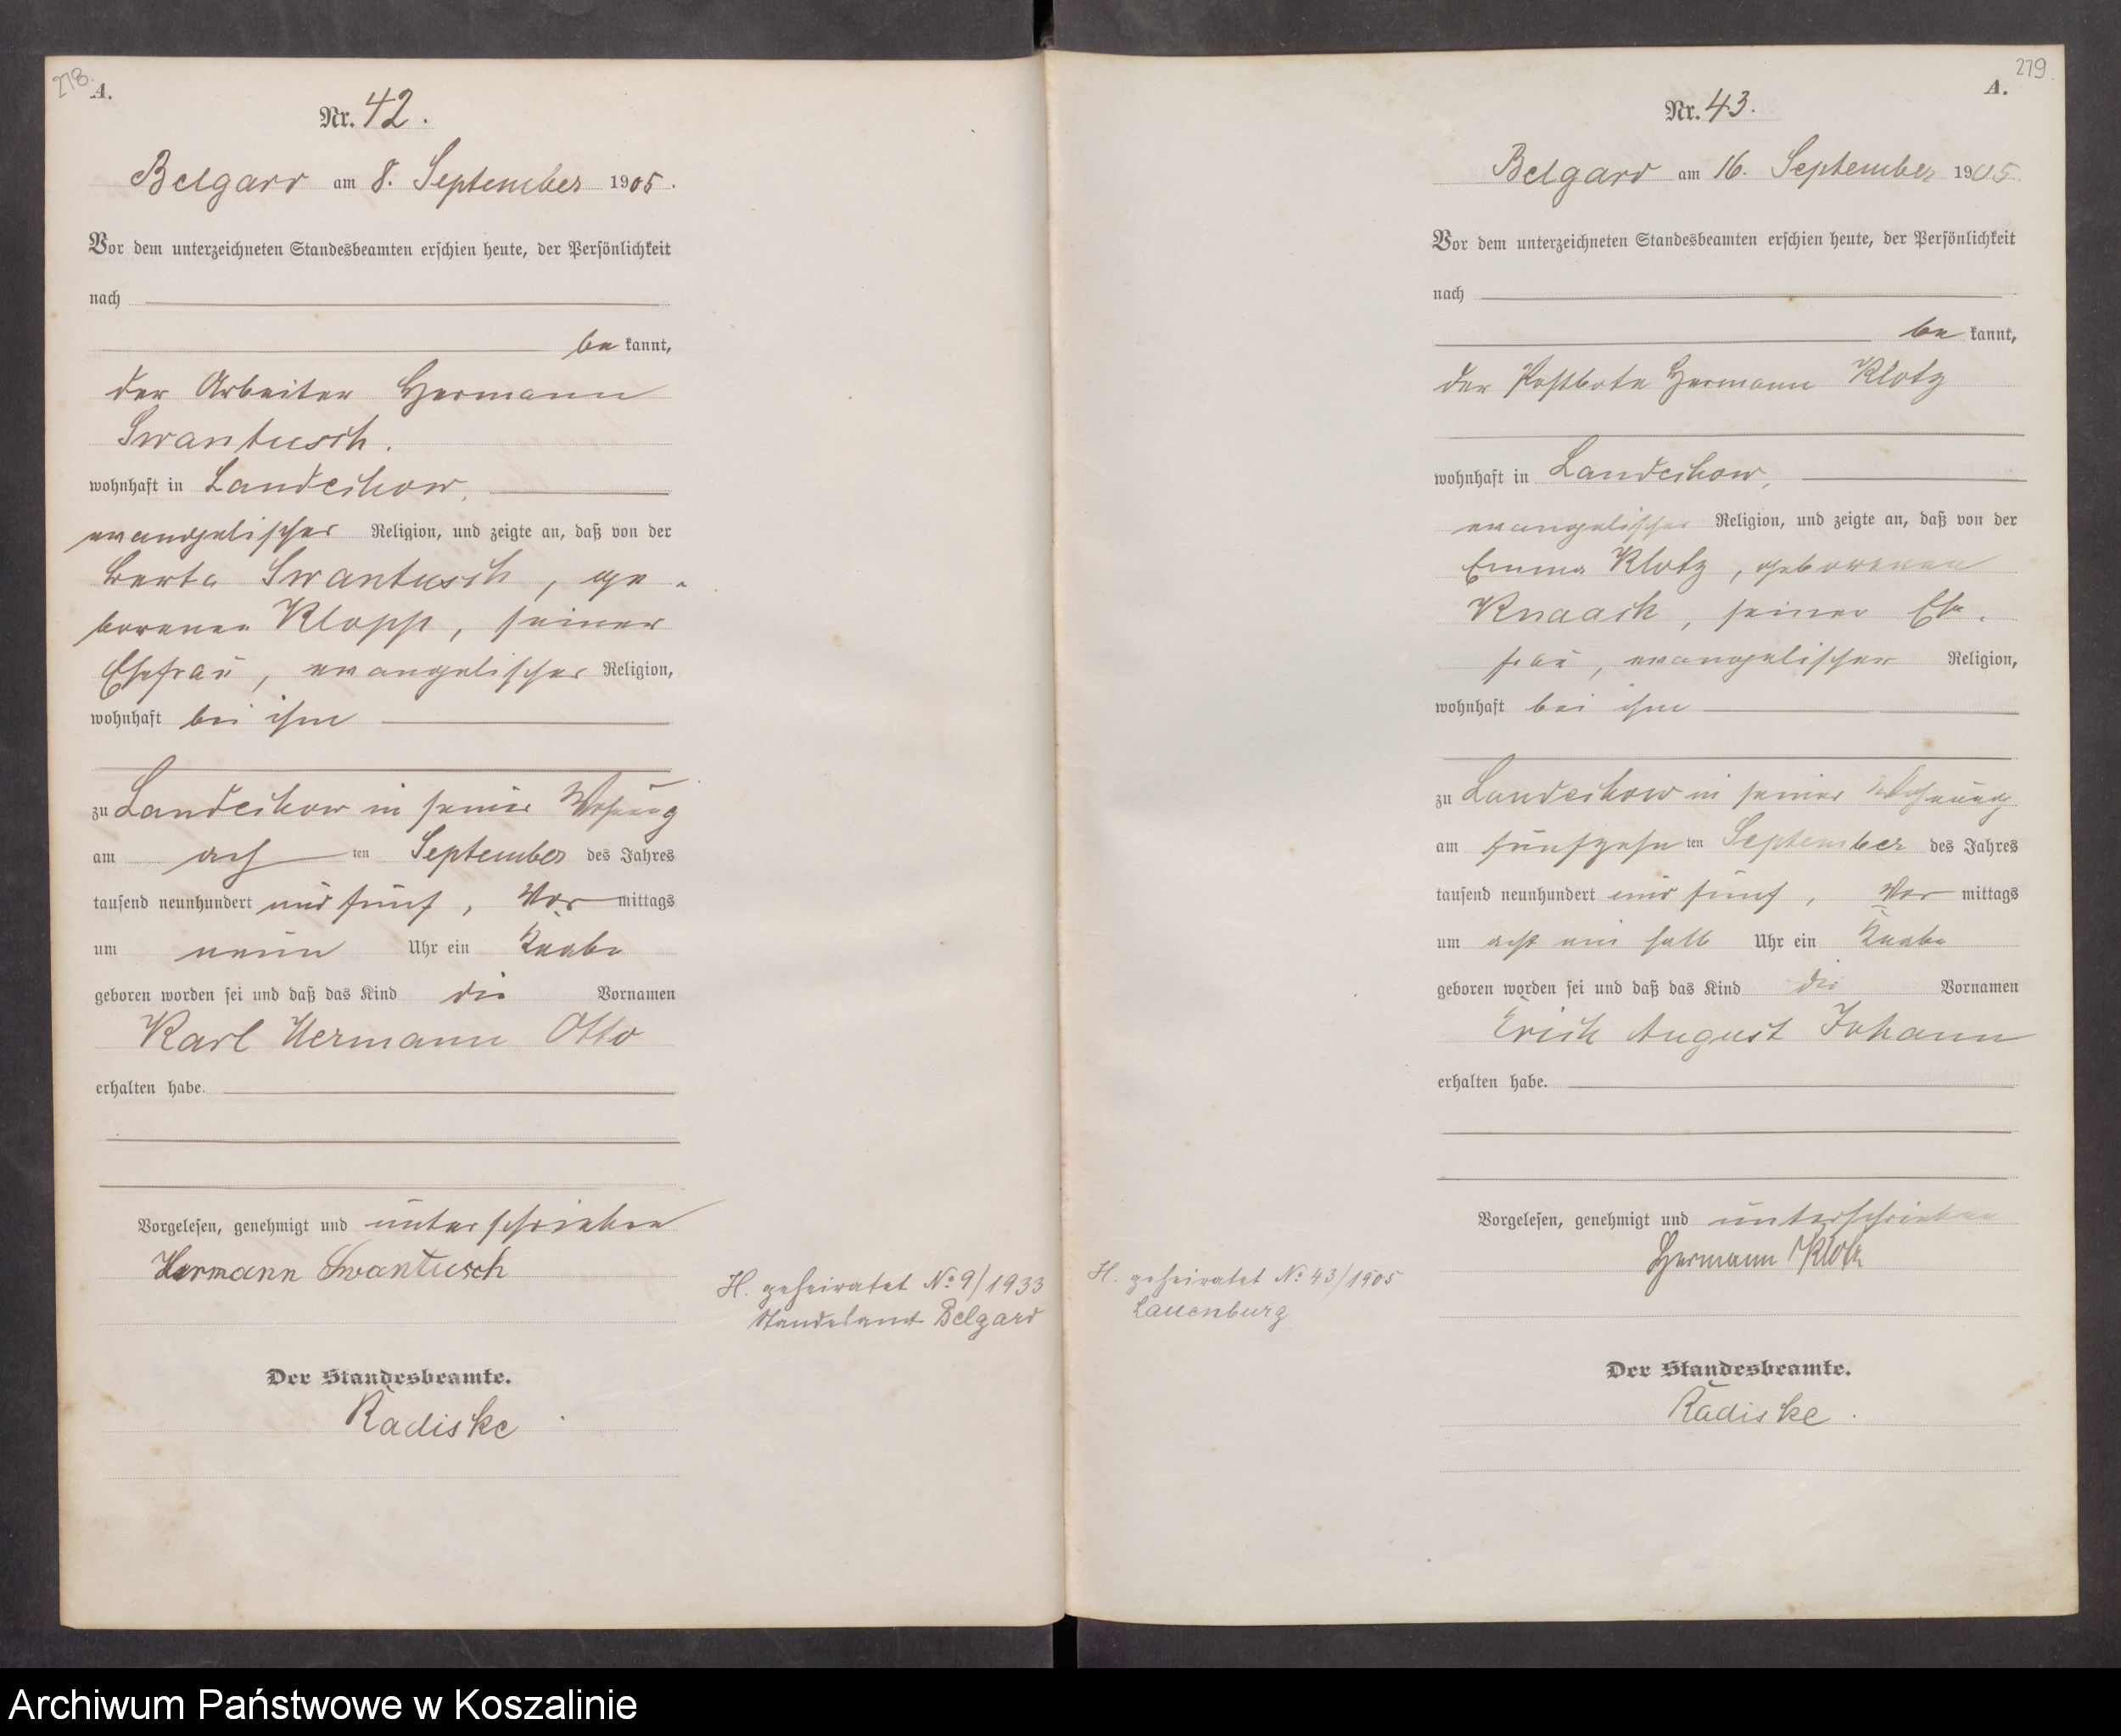 278.
A.
Nr. 42.
Belgard am 8. September 1905.
Vor dem unterzeichneten Standesbeamten erschien heute, der Persönlichkeit
nach
be kannt,
der Arbeiter Hermann
Swantusch.
wohnhaft in Landechow,
evangelischer Religion, und zeigte an, daß von der
Berta Swantusch, ge-
borenen Klopp, seiner
Ehefrau, evangelischer Religion,
wohnhaft bei ihm
zu Landechow in seiner Wohnung
am ach ten September des Jahres
tausend neunhundert und fünf, Vor mittags
um neun Uhr ein Knabe
geboren worden sei und daß das Kind die Vornamen
Karl Hermann Otto
erhalten habe.
Vorgelesen, genehmigt und unterschrieben
Hermann Swantusch
H. geheiratet No 9/1933
Standesamt Belgard
Der Standesbeamte.
Radiske
279.
A.
Nr. 43.
Belgard am 16. September 1905.
Vor dem unterzeichneten Standesbeamten erschien heute, der Persönlichkeit
nach
be kannt,
der Postbote Hermann Klotz
wohnhaft in Landechow,
evangelischer Religion, und zeigte an, daß von der
Emma Klotz, geborenen
Knaack, seiner Ehe-
frau, evangelischer Religion,
wohnhaft bei ihm
zu Landechow in seiner Wohnung
am fünfzehn ten September des Jahres
tausend neunhundert und fünf, Vor mittags
um acht ein halb Uhr ein Knabe
geboren worden sei und daß das Kind die Vornamen
Erich August Johann
erhalten habe.
Vorgelesen, genehmigt und unterschrieben
Hermann Klotz
H. geheiratet No 43/1905
Lauenburg
Der Standesbeamte.
Radiske.
Archiwum Państwowe w Koszalinie